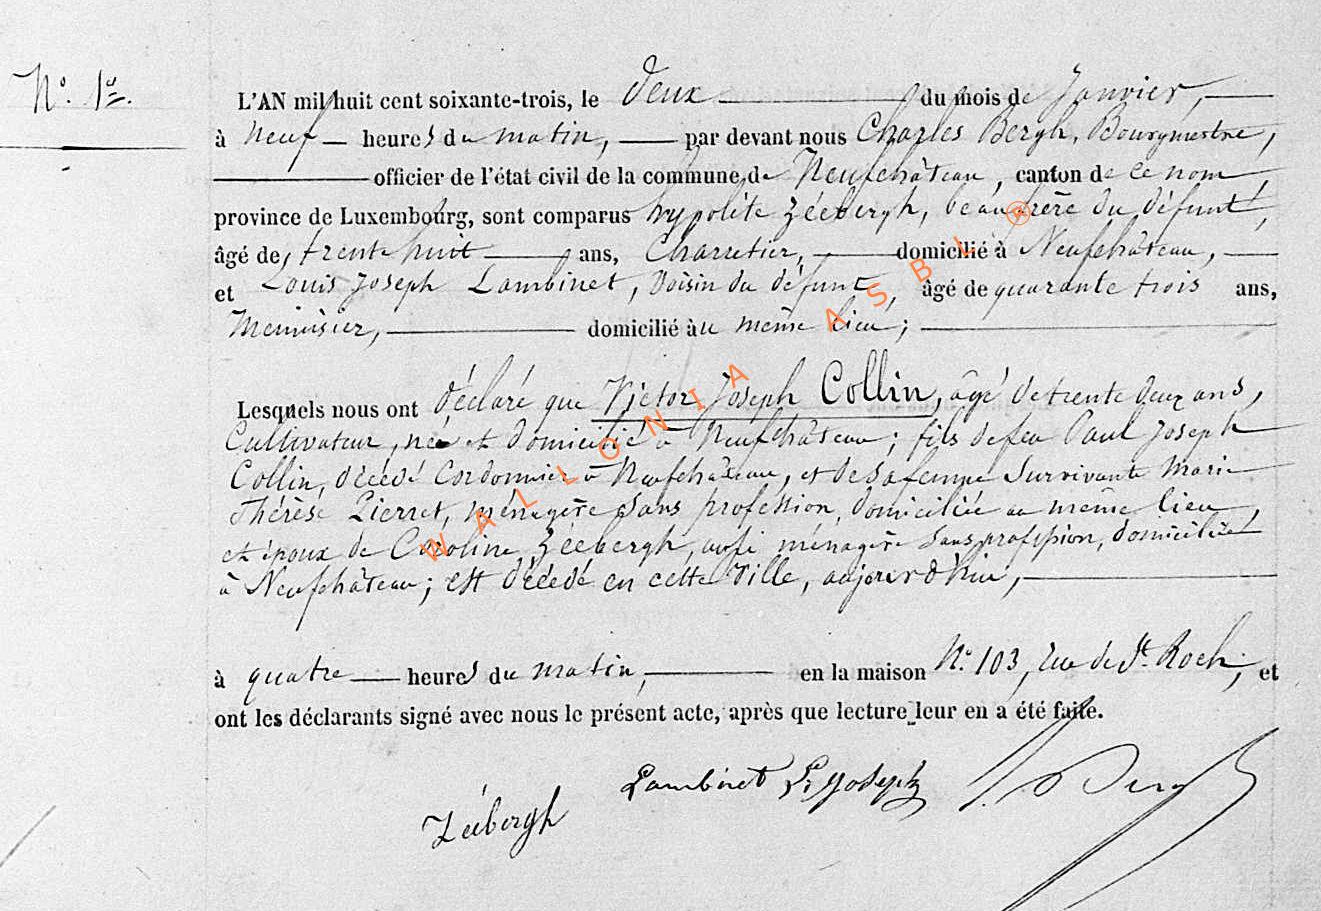 N° 1er.
L'AN mil huit cent soixante-trois, le deux du mois de Janvier,
à neuf heures du matin, par devant nous Charles Bergh, Bourgmestre,
officier de l'état civil de la commune de Neufchâteau, canton de ce nom,
province de Luxembourg, sont comparus hypolite Zéebergh, beaufrère du défunt,
âgé de trente huit ans, Charretier, domicilié à Neufchâteau,
et Louis Joseph Lambinet, voisin du défunt, âgé de quarante trois ans,
Menuisier, domicilié au même lieu;
Lesquels nous ont déclaré que Victor Joseph Collin, âgé de trente deux ans,
Cultivateur, né et domicilié à Neufchâteau; fils de feu Paul Joseph
Collin, décédé Cordonnier à Neufchâteau, et de sa femme Survivante Marie
Thérèse Pierret, ménagère sans profession, domiciliée au même lieu,
et époux de Caroline Zéebergh, aussi ménagère sans profession, domiciliée
à Neufchâteau; est décédé en cette Ville, aujourd'hui,
à quatre heures du matin, en la maison N° 103, rue de St. Roch; et
ont les déclarants signé avec nous le présent acte, après que lecture leur en a été faite.
Lambinet Ls Joseph
Zéebergh
WALLONIA ASBL ®